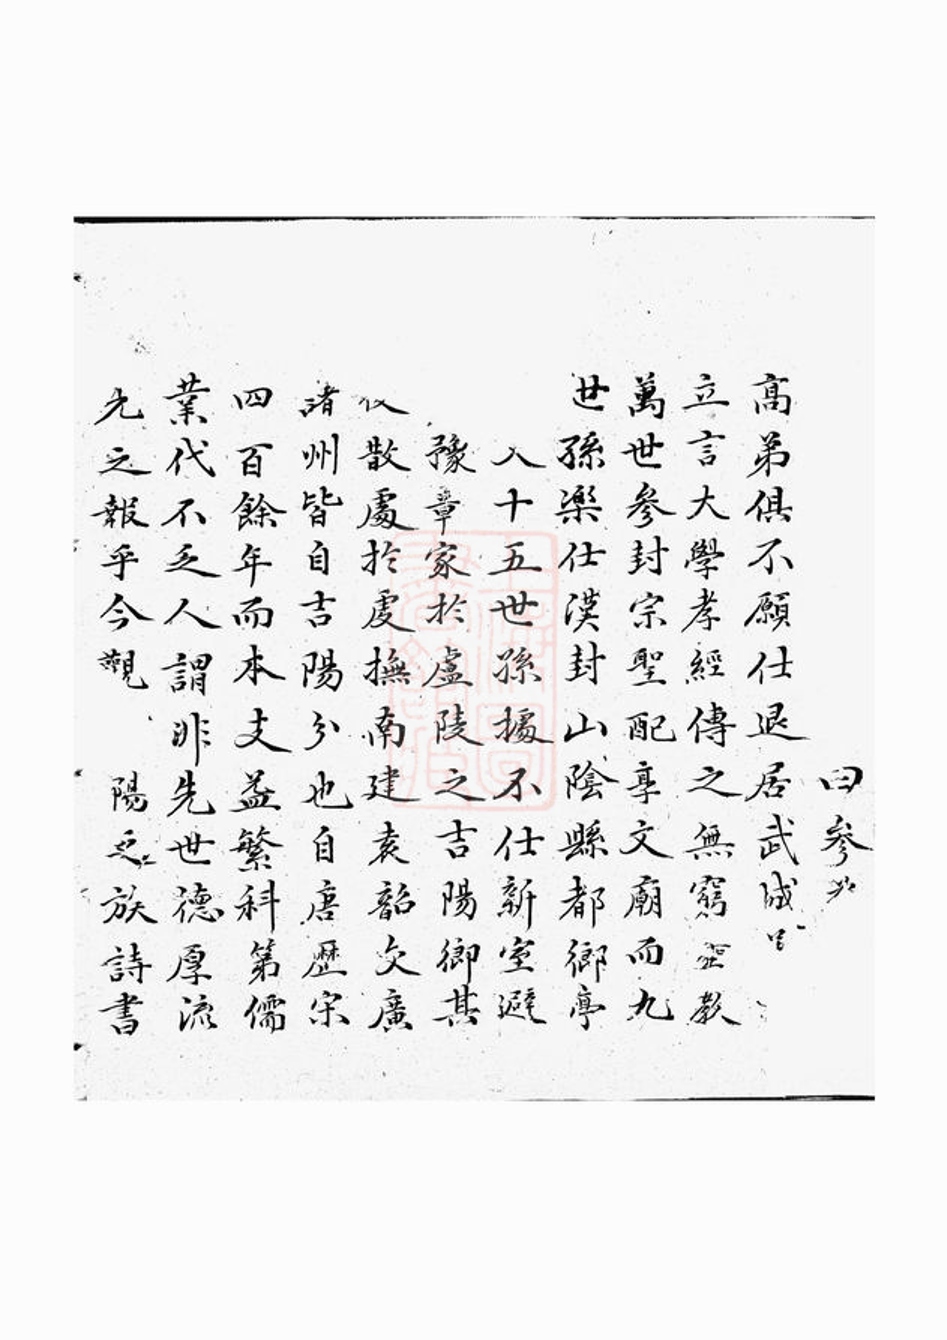 曰參
高弟俱不願仕退居武城
立言大學孝經傳之無窮 教
萬世參封宗聖配享文廟而九
世孫樂仕漢封山陰縣都鄉亭
十五世孫據不仕新室避
豫章家於廬陵之吉陽鄉其
散處於虔撫南建袁韶交廣
諸州皆自吉陽分也自唐歷宋
四百餘年而本支益繁科第儒
業代不乏人謂非先世德厚流
光之報乎今觀 陽之族詩書